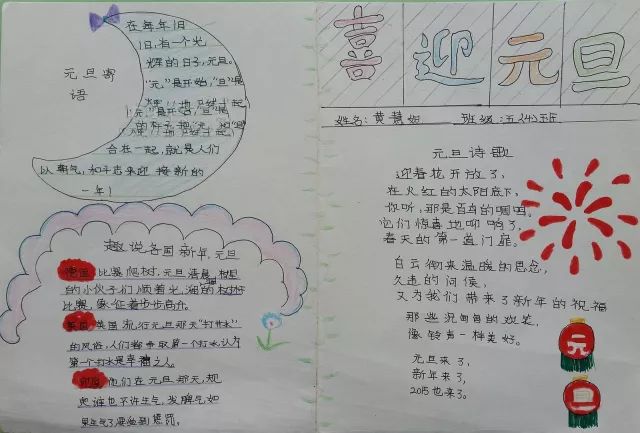 在每年1月
1日,有一个光
辉的日子,元旦。
元旦寄
语
"元"是开始,"旦"是
合在一起,就是人们
以朝气,如子去来迎接新的
一年!
趣说各国新年,元旦
德国:比赛爬树,元旦清晨,
的小伙子们顺着光
比赛,象征着步步高升。
英国:英国流行元旦那天"打井水"
的风俗,人们都争取第一个打水,认为
第一个打水是幸福之人。
他们在元旦那天,规
定谁也不许生气,发脾气,如
喜迎元旦
姓名:黄慧如 班级:五(4)班
元旦诗歌
迎春花开放了,
在火红的太阳底下,
你听,那是百鸟的唱唱。
它们惊喜地叩响了,
春天的第一道门扉。
白云衔来温暖的思念,
久违的问候,
又为我们带来了新年的祝福
那些沉甸甸的欢笑,
像铃声一样美好。
元旦来了,
新年来了,
2015也来了。
元
旦